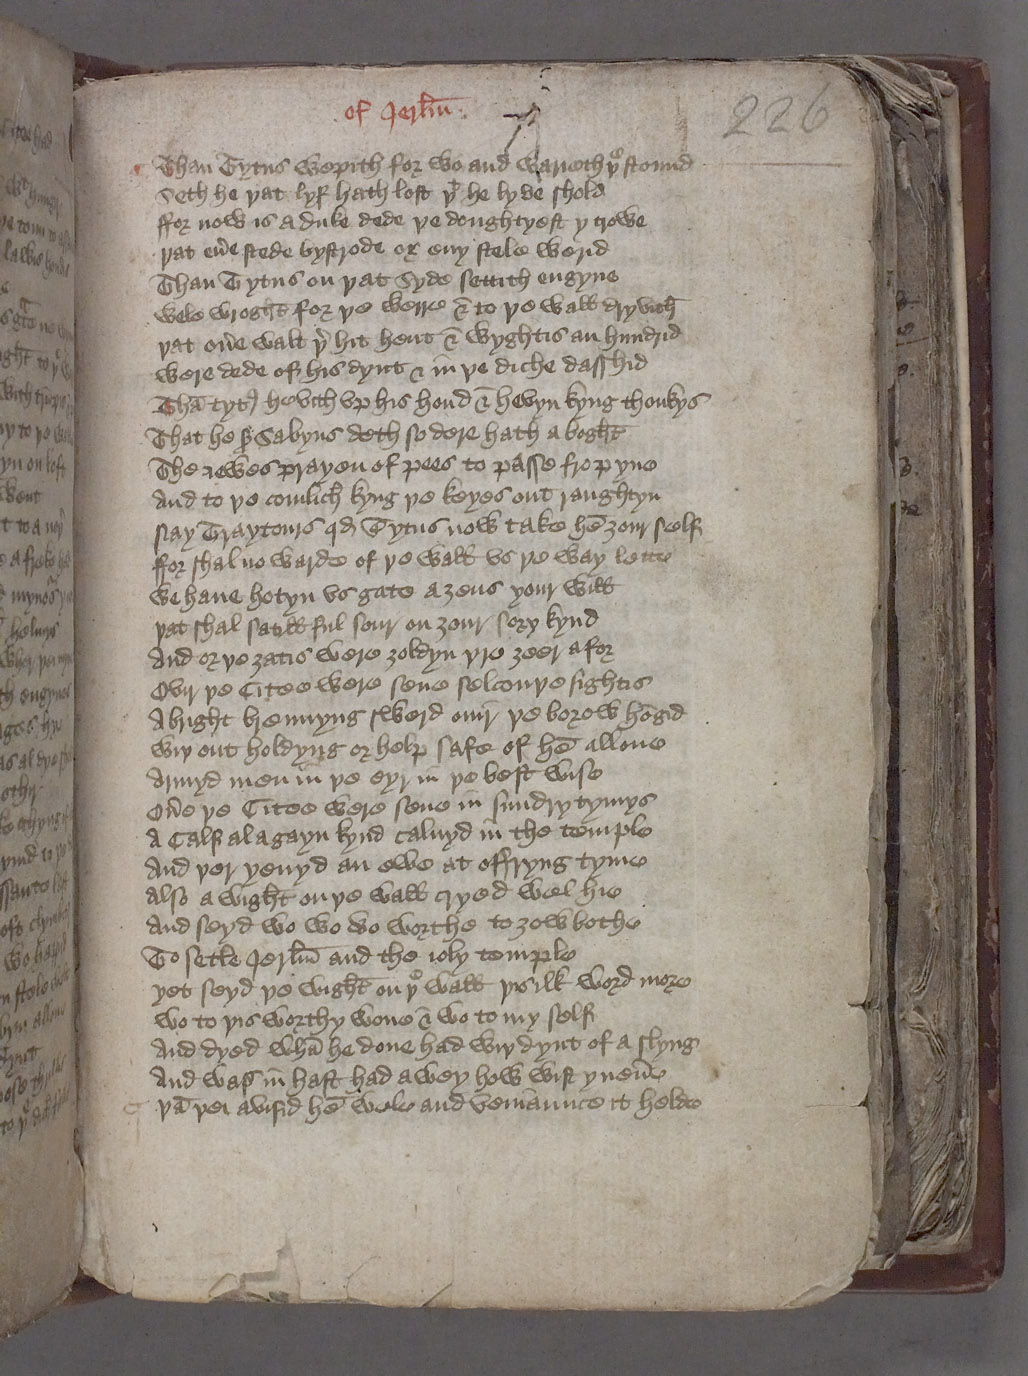 of Jerłm̄
226
Than Tytus wepith for wo and warieth yͦ stound
Seth he yat lyf hath lost yͬ he lyve shold
ffor now is a duke dede ye doughtyest y trowe
yat eu̅e stede bystrode or eny stele werid
Than Tytus on yat Syde settith engyne
wele wroght for ye werre & to ye wałł dryvith
yat ou̅e walt yͬ hit hent & wyghtis an hundrid
were dede of his dynt & in ye diche dasshid
Thā tytꝰ hevith vp his hond & hevyn kyng thonkys
That he Sabyns deth so dere hath a boght
The iewes prayen of pees to passe fro pyne
And to ye comlich kyng ye keyes out raughtyn
Nay Traytours qđ Tytus now take hē ȝour self
ffor shal no warde of ye wałł vs ye way lette
we haue hotyn vs gate aȝens your wiłł
yat shal satiłł ful sour on ȝour sory kynd
And or ye ȝatis were ȝoldyn yre ȝeer afor
Ovir ye Citee were sene selcouye sightis
A bright brennyng swerd ouir ye borow hōgid
wiy out holdyng or help safe of hē allone
Armyd men in ye eyr in ye best wise
Ou̅e ye Citee were sene in sundry tymys
A Calf al agayn kynd caluyd in the temple
And yer yenyd an ewe at offryng tyme
Also a wight on ye wałł cryed wel hie
And seyd wo wo wo worthe to ȝow bothe
To setle Jerłm̄ and the ioly temple
yet seyd ye wight on yͦ wałł yis ilk word more
wo to yis worthy wone & wo to my self
And dyed whā he done had wiy dynt of a slyng
And was in hast had awey how wist y neu̅e
yā yei avisid hē wele and veniaunce it helde